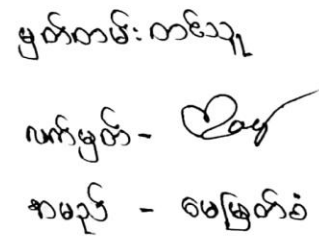 မှတ်တမ်းတင်သူ
လက်မှတ် -
အမည် - မေမြတ်စံ